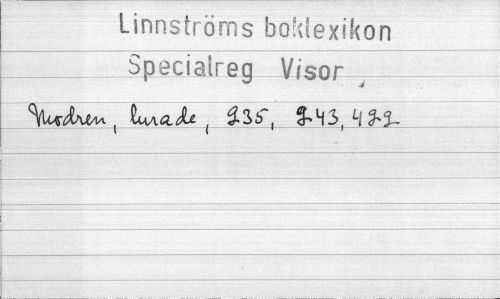 Linnströms boklexikon
Specialreg Visor
Modren, lurade, 235, 243, 422